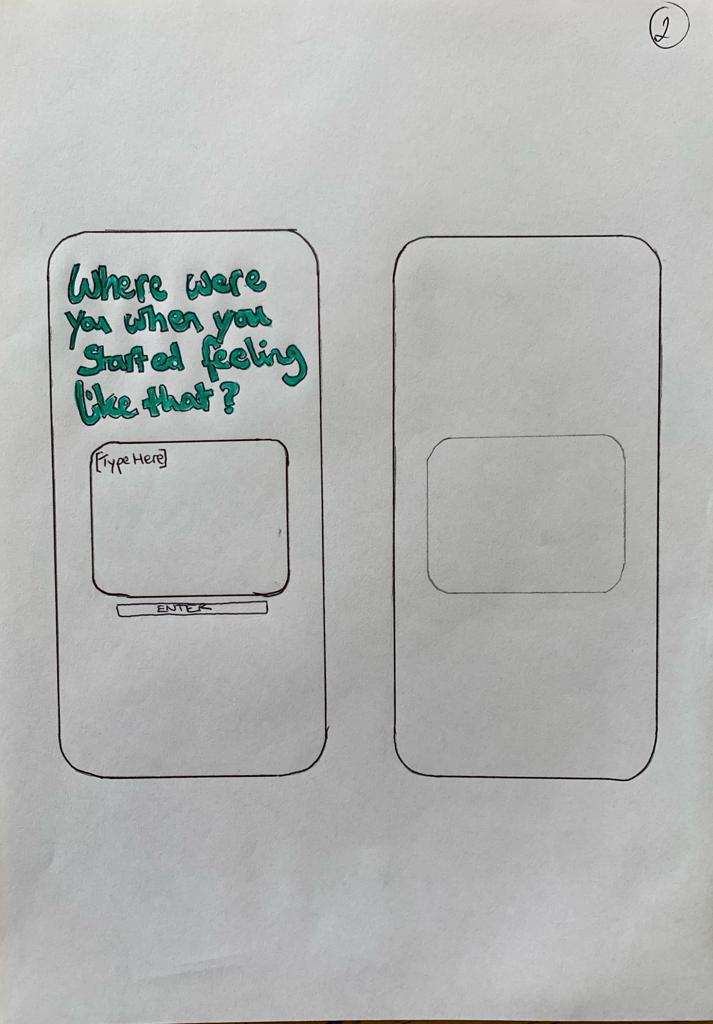 2
Where were
you when you
started feeling
like that?
[Type Here]
ENTER